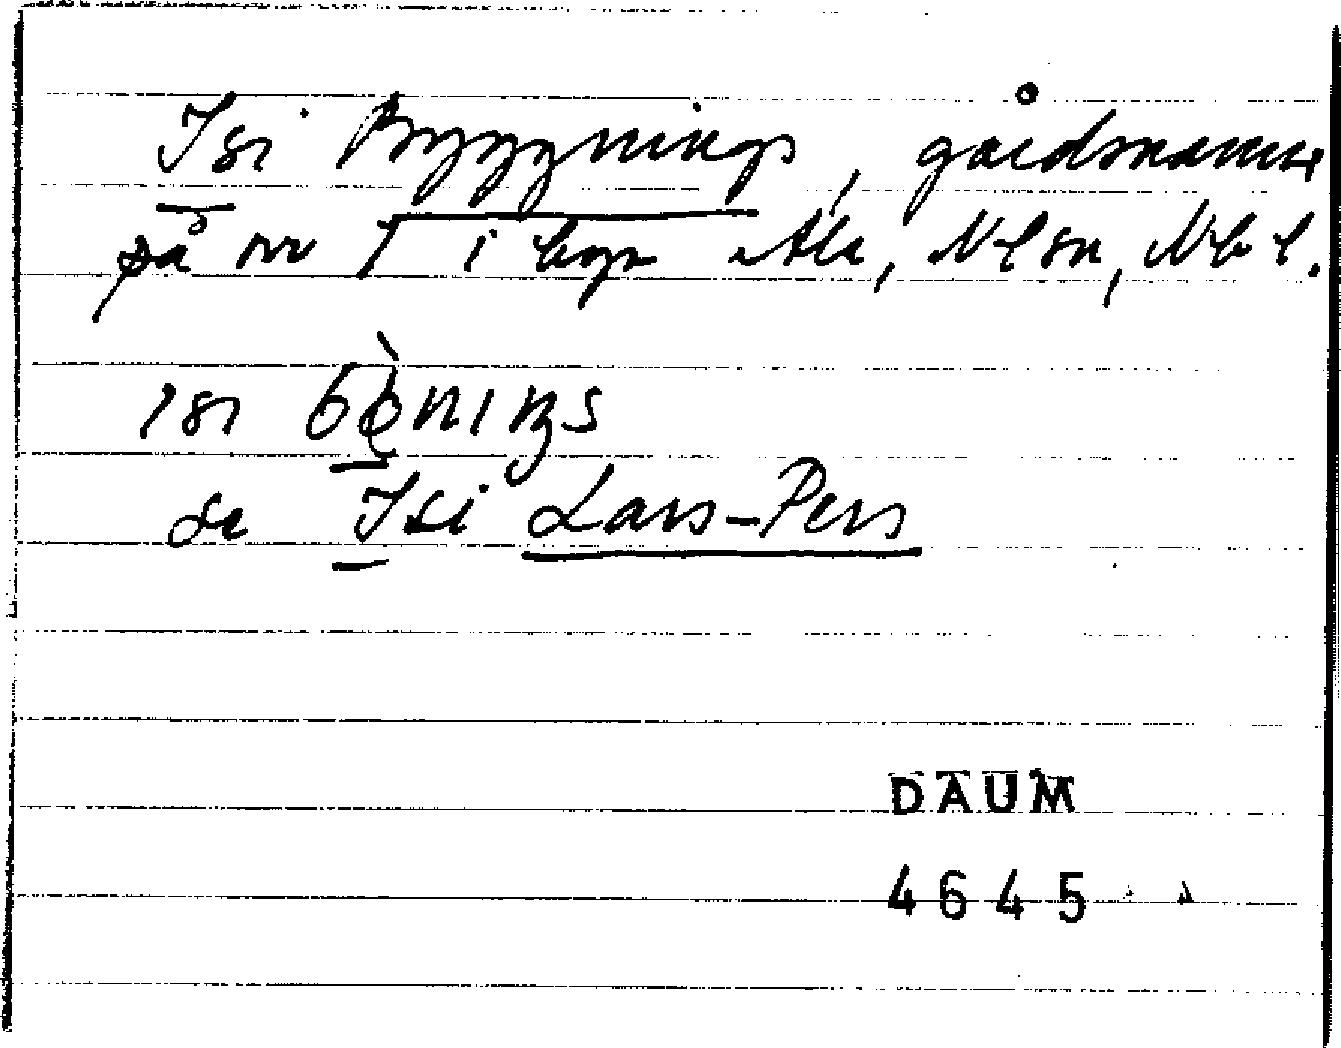 Isi Byggnings, gårdsnamn
på nr 1 i byn Ale, Nlsn, Nbt.
isi
se Isi Lars-Pers
DAUM
4645